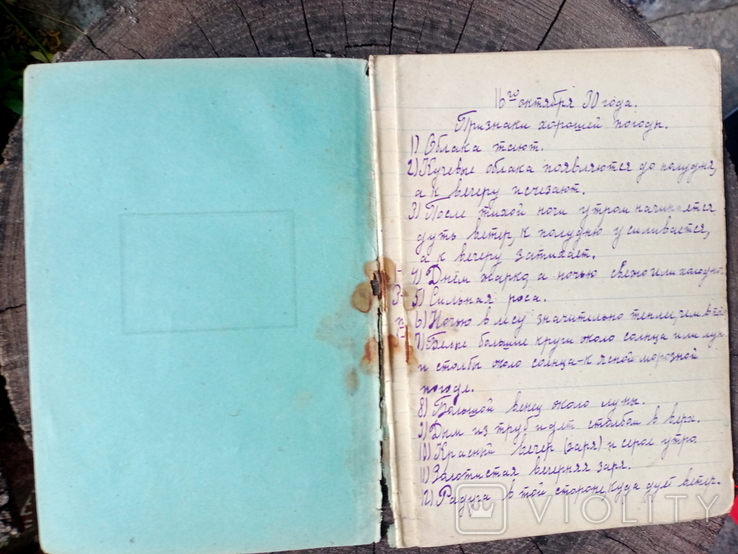 16го октября 30 года.
Признаки хорошей погоды.
1) Облака тают.
2) Кучевые облака появляются до полудня,
а к вечеру исчезают.
3) После тихой ночи утром начинается
дуть ветер, к полудню усиливается,
а к вечеру затихает.
4) Днём жарко, а ночью свежо или холодно.
5) Сильная роса.
6) Ночью в лесу значительно теплей, чем в
7) Белые большие круги около солнца или
и столбы около солнца - к ясной морозной
погоде.
8) Большой венец около луны.
9) Дым из труб идет столбом в верх.
10) Красный вечер (заря) и серое утро
11) Золотистая вечерняя заря.
12) Радуга в той стороне куда дует ветер.
VIOLITY